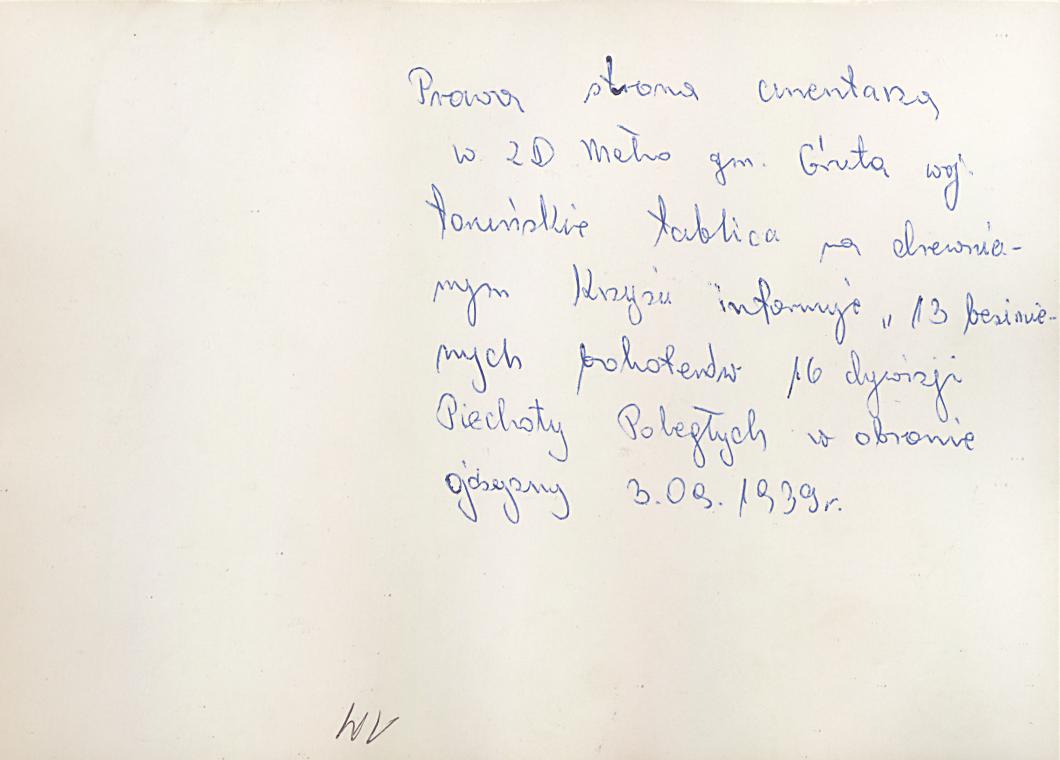 Prawa strona cmentarza
w ZD Mełno gm. Gruta woj.
toruńskie tablica na drewnia-
nym Krzyżu informuje „13 bezimie-
nnych bohaterów 16 dywizji
Piechoty Poległych w obronie
ojczyzny 3.09.1939r.